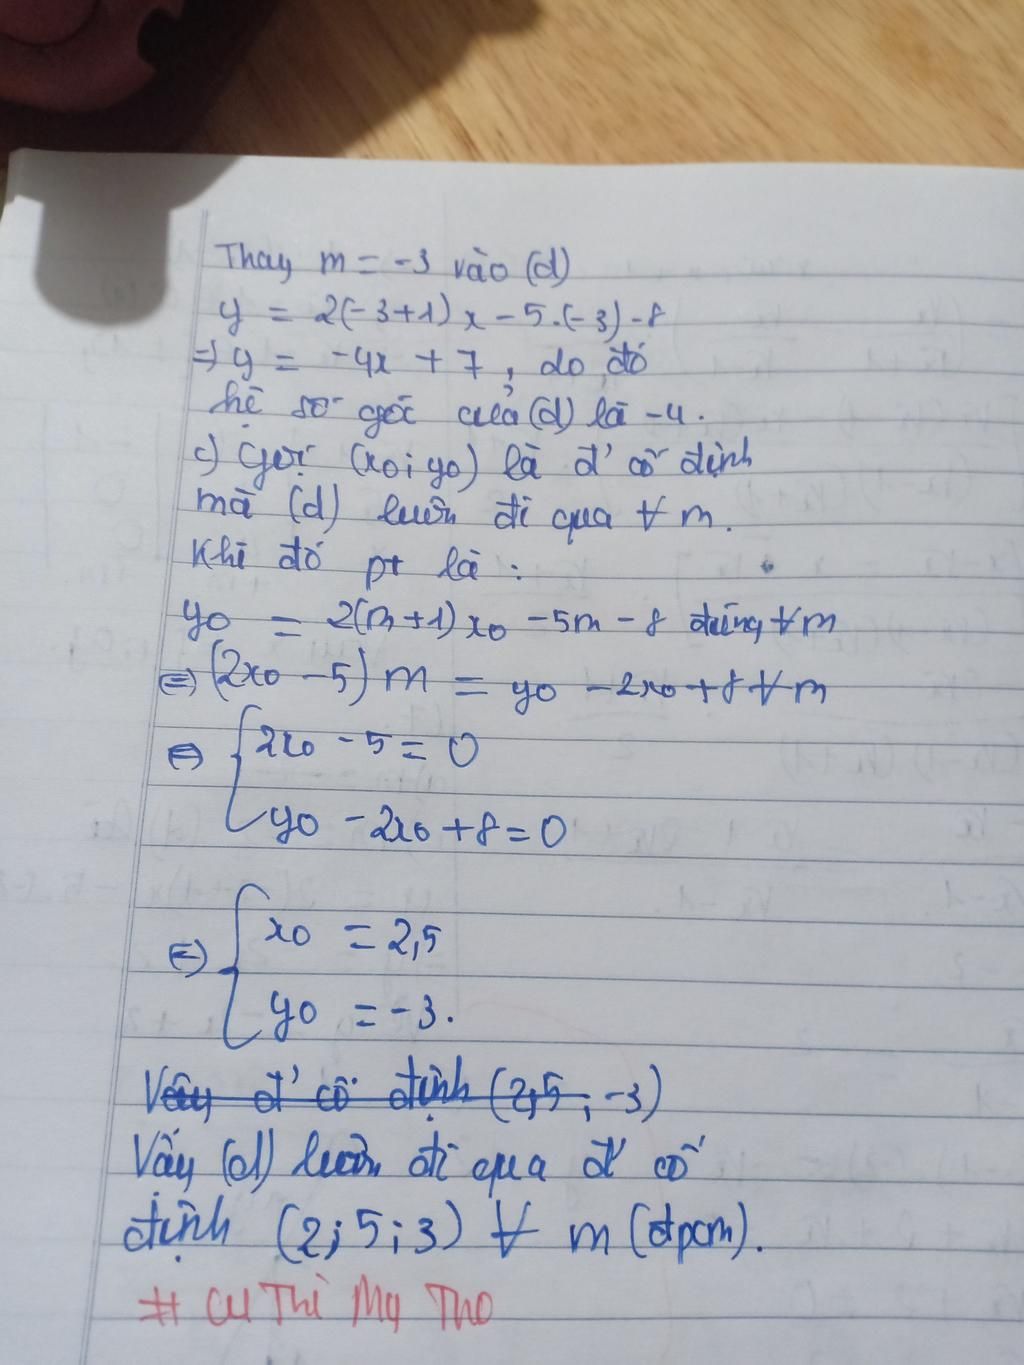 Thay m = -3 vào (d)
y = 2(-3+1)x - 5.(-3) - 8
=> y = -4x + 7, do đó
hệ số góc của (d) là -4.
c) Gọi (x0; y0) là đ' cố định
mà (d) luôn đi qua ∀ m.
Khi đó pt là :
y0 = 2(m+1)x0 - 5m - 8 đúng ∀ m
<=> (2x0 - 5)m = y0 - 2x0 + 8 ∀ m
<=> { 2x0 - 5 = 0
y0 - 2x0 + 8 = 0
<=> { x0 = 2,5
y0 = -3.
Vậy đ' cố định (2,5; -3)
Vậy (d) luôn đi qua đ' cố
định (2;5;3) ∀ m (đpcm).
# Cu Thi Mạ Tho